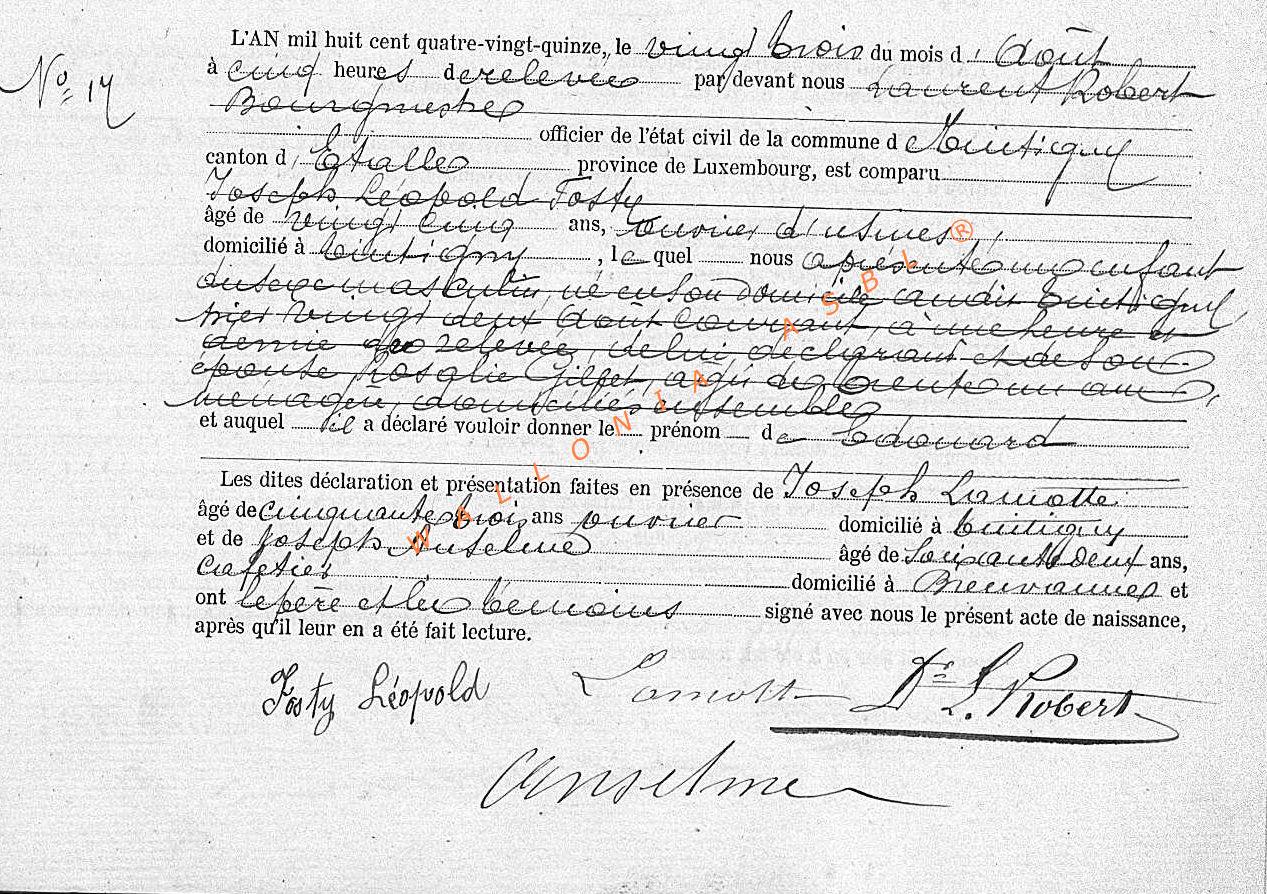 No 17
L'AN mil huit cent quatre-vingt-quinze, le vingt trois du mois d' Août
à cinq heures de relevée par devant nous Laurent Robert
Bourgmestre
officier de l'état civil de la commune d Tintigny
canton d' Etalle province de Luxembourg, est comparu
Joseph Léopold Fosty
âgé de vingt cinq ans, ouvrier d'usines,
domicilié à Tintigny, lequel nous a présenté un enfant
du sexe masculin, né en son domicile audit Tintigny,
hier vingt deux Août courant, à une heure et
demie de relevée, de lui, déclarant et de son
épouse, Rosalie Gilfet, agée de trente un ans,
ménagère, domiciliés ensemble
et auquel il a déclaré vouloir donner le prénom de Edouard
Les dites déclaration et présentation faites en présence de Joseph Lamotte
âgé de cinquante trois ans ouvrier domicilié à Tintigny
et de Joseph Anselme âgé de soixante deux ans,
cafetier domicilié à Breuvanne et
ont le père et les témoins signé avec nous le présent acte de naissance,
après qu'il leur en a été fait lecture.
Fosty Léopold Lamotte Dr L. Robert
Anselme
WALLONIA ASBL ®